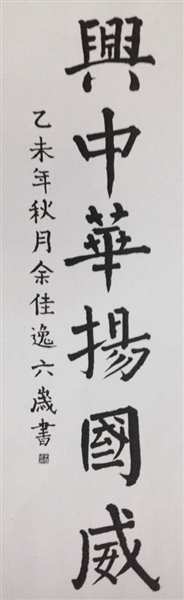 興中華揚國威
乙未年秋月余佳逸六歲書